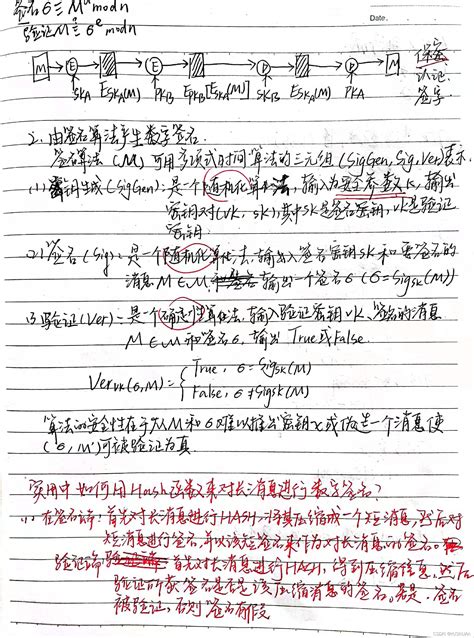 签名 σ ≡ M^d mod n
验证 M ≡ σ^e mod n
Date.
M → E → E_SKA(M) → E → E_PKB[E_SKA(M)] → D → E_SKA(M) → D → M
SKA PKB SKB PKA
保密
认证
签字
2. 由签名算法产生数字签名.
签名算法 (M) 可用多项式时间算法的三元组 (SigGen, Sig, Ver)表示.
(1) 密钥生成(SigGen): 是个随机化算法, 输入为安全参数k, 输出
密钥对(vk, sk), 其中sk是签名密钥, vk是验证
密钥.
(2) 签名(Sig): 是一个随机化算法, 输出入签名密钥sk和要签名的
消息M∈M 输出一个签名σ (σ=Sig_sk(M))
(3) 验证(Ver): 是个确定性算法, 输入验证密钥vk、签名的消息
M∈M和签名σ, 输出 True或False.
Ver_vk(σ,M) = { True, σ=Sig_sk(M)
False, σ≠Sig_sk(M)
算法的安全性在于从M和σ难以推出密钥x或伪造一个消息使
(σ, M')可被验证为真.
实用中如何用Hash函数来对长消息进行数字签名?
(1) 在签名端: 首先对长消息进行HASH, 将其压缩成一个短消息, 然后对
短消息进行签名, 并以该短签名来作为对长消息的签名。
验证端 首先对长消息进行HASH, 得到压缩信息, 然后
验证所获签名是否是该压缩消息的签名。若是, 签名
被验证, 否则签名
CSDN